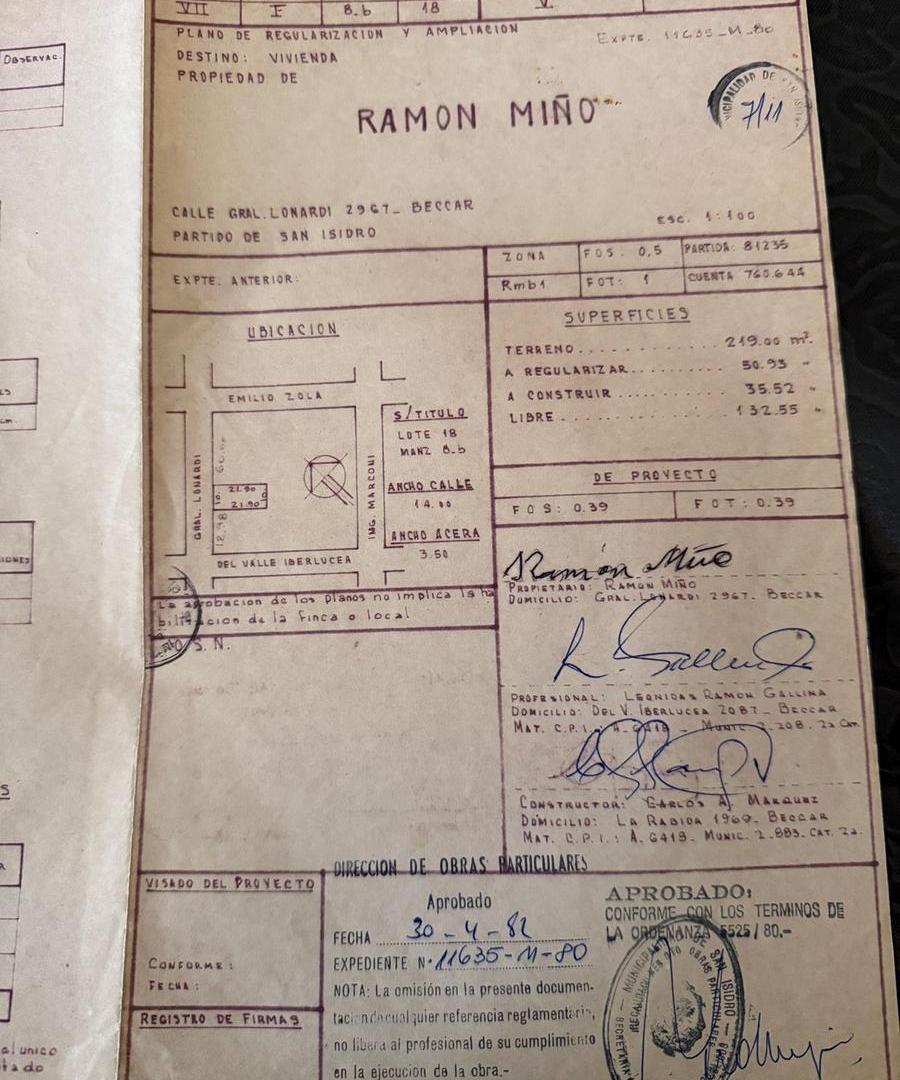 OBSERVAC.
VII F 8.b 18 V.
PLANO DE REGULARIZACION Y AMPLIACION
EXPTE. 11635-M-80
DESTINO: VIVIENDA
PROPIEDAD DE
RAMON MIÑO
7/11
CALLE GRAL. LONARDI 2967_ BECCAR
ESC. 1:100
PARTIDO DE SAN ISIDRO
EXPTE. ANTERIOR:
ZONA FOS. 0,5 PARTIDA: 81235
Rmb1 FOT: 1 CUENTA 760.644
UBICACION
EMILIO ZOLA
GRAL. LONARDI
ING. MARCONI
21.90
21.90
10.
DEL VALLE IBERLUCEA
S/TITULO
LOTE 18
MANZ 8.b
ANCHO CALLE
14.00
ANCHO ACERA
3.50
SUPERFICIES
TERRENO 219.00 m².
A REGULARIZAR 50.93 "
A CONSTRUIR 35.52 "
LIBRE 132.55 "
DE PROYECTO
FOS: 0.39 FOT: 0.39
La aprobacion de los planos no implica la ha
bilitacion de la finca o local
O. S. N.
Ramón Miño
PROPIETARIO: RAMON MIÑO
DOMICILIO: GRAL. LONARDI 2967. BECCAR
PROFESIONAL: LEONIDAS RAMON GALLINA
DOMICILIO: DEL V. IBERLUCEA 2087_ BECCAR
MAT. C.P.I.: A. 6418_ MUNIC. 2.208. 2a CAT.
CONSTRUCTOR: CARLOS A. MARQUEZ
DOMICILIO: LA RABIDA 1960_ BECCAR
MAT. C.P.I.: A. 6419. MUNIC. 2.883. CAT. 2a.
VISADO DEL PROYECTO
CONFORME:
FECHA:
REGISTRO DE FIRMAS
DIRECCION DE OBRAS PARTICULARES
Aprobado
FECHA 30-4-82
EXPEDIENTE N° 11635-M-80
NOTA: La omisión en la presente documen-
tación de cualquier referencia reglamentaria,
no libera al profesional de su cumplimiento
en la ejecución de la obra.-
APROBADO:
CONFORME CON LOS TERMINOS DE
LA ORDENANZA 5525/80.-
MUNICIPALIDAD DE SAN ISIDRO